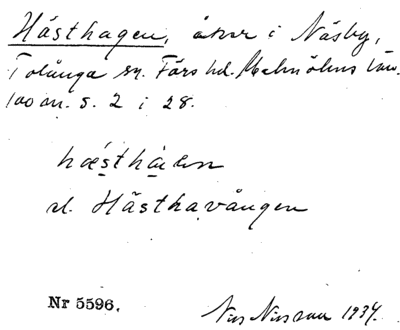 Hästhagen, åker i Näsby,
Tolånga sn. Färs hd. Malmöhus län.
100 m. s. 2 i 28.
hästha
el. Hästhavången
Nr 5596.
Nils Nilsson 1934.